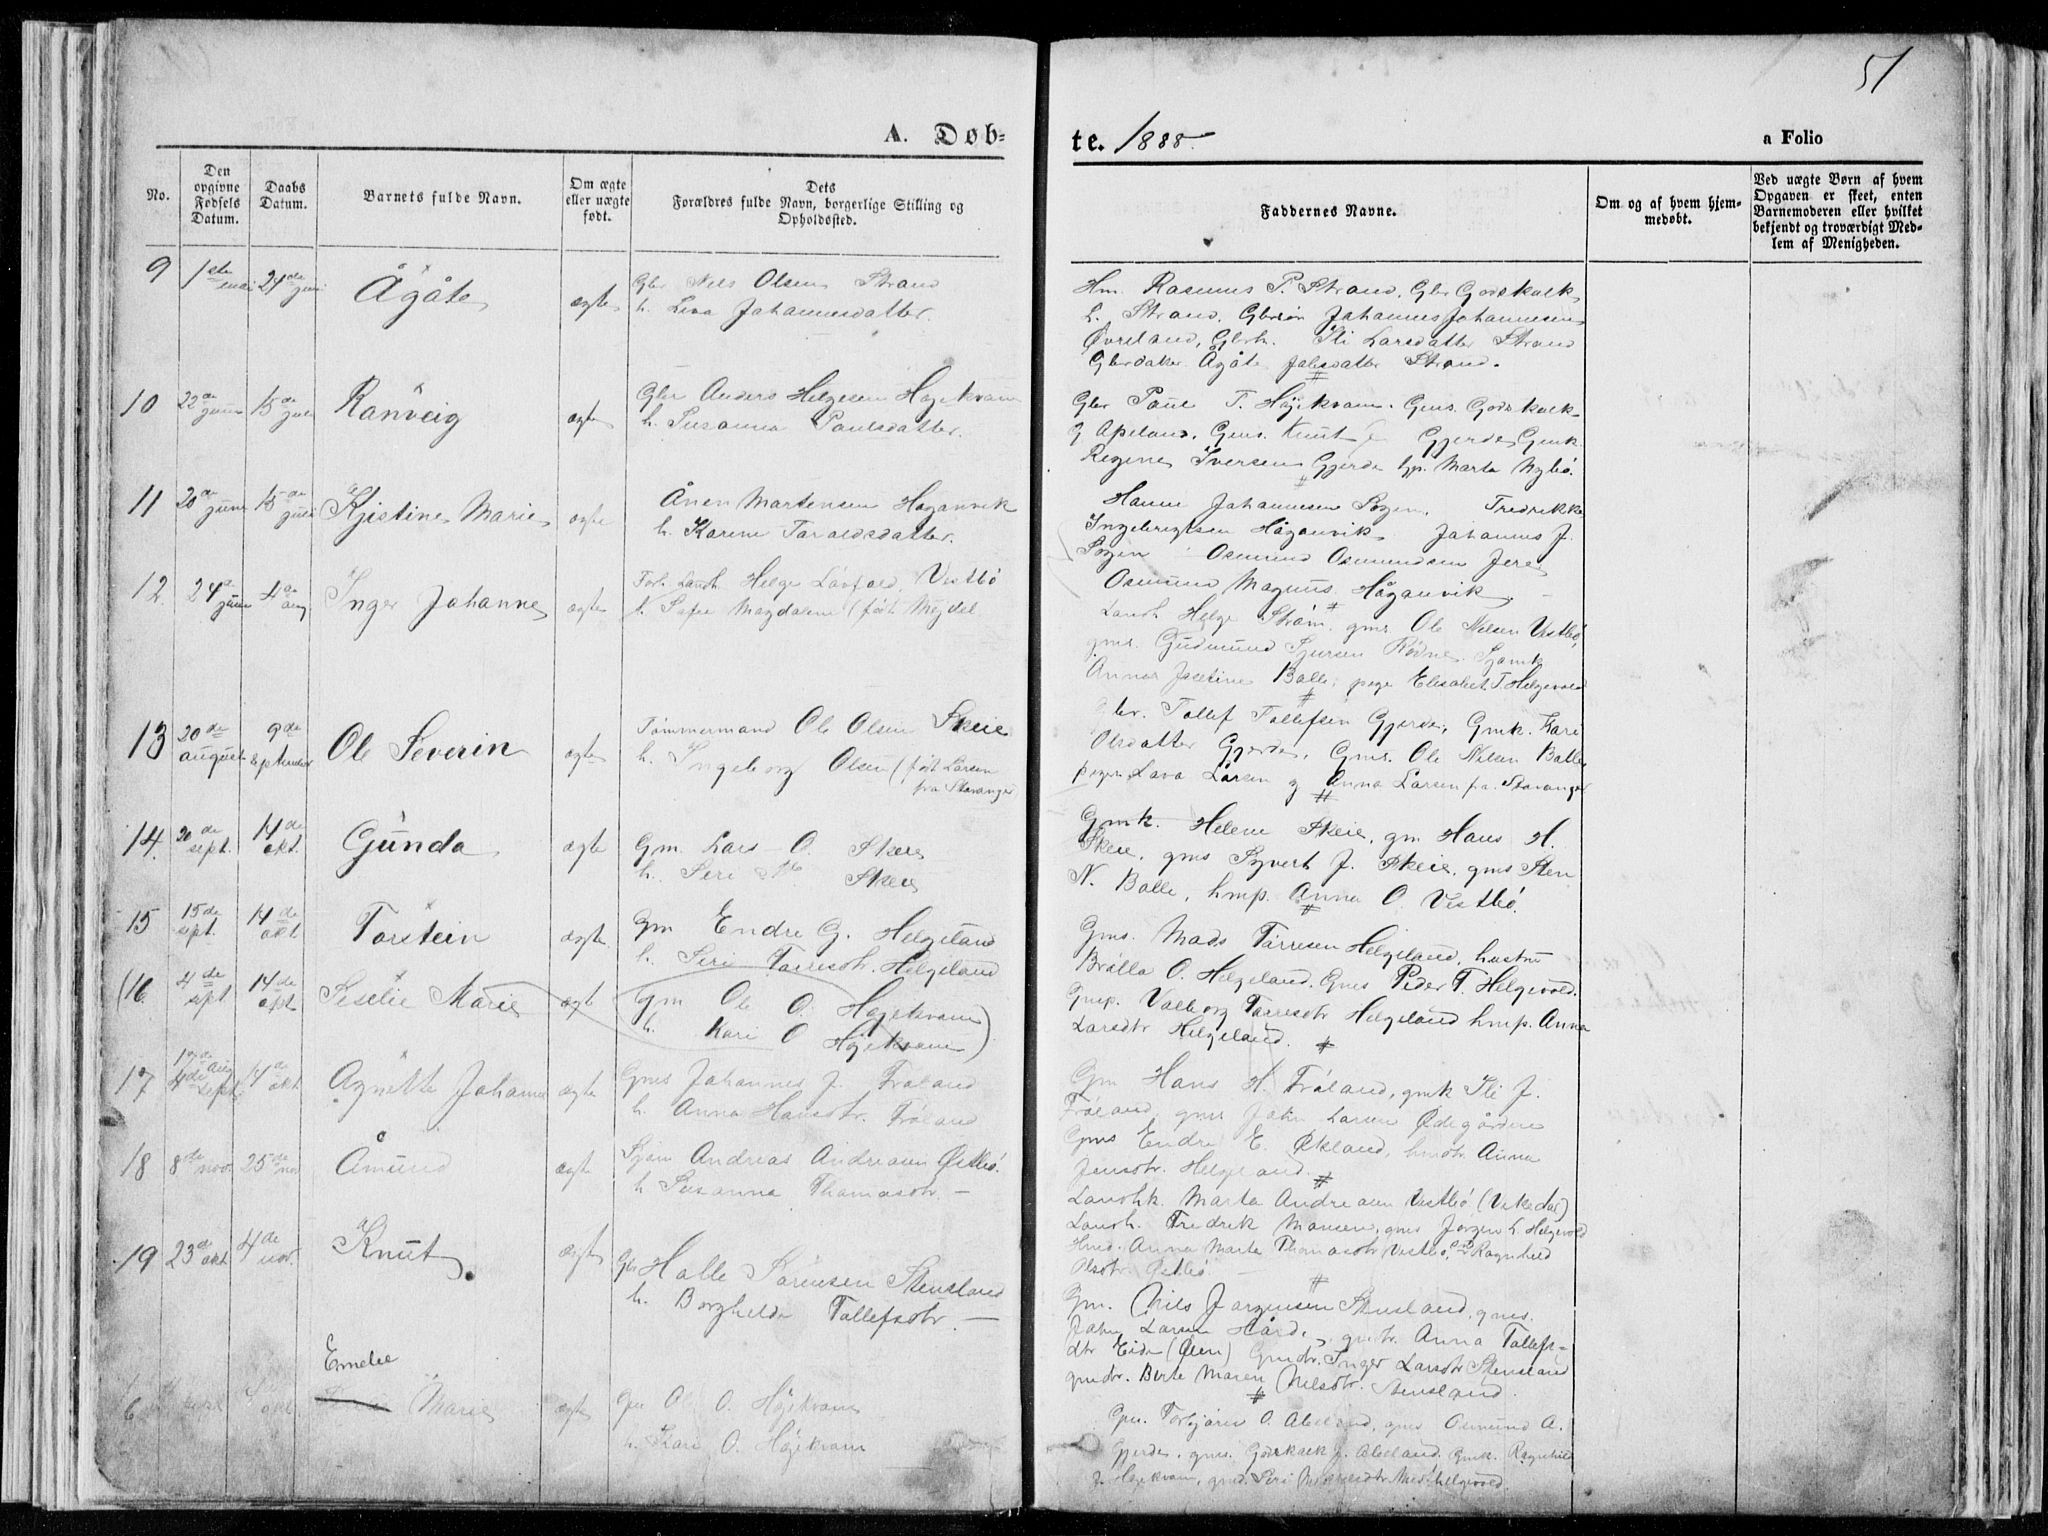 51
A. Døb-
te. 1888.
a Folio
No.
Den opgivne Fødsels Datum.
Daabs Datum.
Barnets fulde Navn.
Om ægte eller uægte født.
Dets Forældres fulde Navn, borgerlige Stilling og Opholdssted.
Faddernes Navne.
Om og af hvem hjemmedøbt.
Ved uægte Børn af hvem Opgaven er skeet, enten Barnemoderen eller hvilket bekjendt og troværdigt Medlem af Menigheden.
9 1ste mai 24de juni Ågåte ægte Gbr Nels Olsen Strand
h. Johannesdatter.
Hm. Rasmus P. Strand, Gbr Godskalk
h. Strand, Gbrsøn Johannes Johannesen
Øvreland, Gbrk. Ili Larsdatter Strand
Gbrdatter Ågåte Strand.
10 22de juni 15de juli Ranveig ægte Gbr Anders Helgesen Høiekvam
h. Susanna Paulsdatter.
Gbr Paul T. Høiekvam. Gms. Godskalk
Apeland, Gms. Knut Gjerde, Gmk.
Regine Iversen Gjerde hp. Marta Nybø.
11 20de juni 15de juli Kjistine Marie ægte Ånen Martensen Håganvik
h. Karine Taraldsdatter.
Hanne Johannesen Sogen, Fredrikke
Ingebrigtsen Håganvik Johannes J.
Sogen Osmund Osmundsen
Osmund Magnus Håganvik.
12 24de juni aug Inger Johanne ægte Helge Vestbø
h. Magdalene (født Mejdel
Landh Helge Strøm, gms Ole Nelsen Vestbø,
gms. Gudmund Sjursen Rødne
Anna Balle, pige Elisabet T. Helgevold
13 20de august 9de september Ole Severin ægte Tømmermand Ole Olsen Skeie
h. Ingeborg Olsen (født Larsen
fra Stavanger
Gbr. Tollef Tollefsen Gjerde, Gmk. Kari
Olsdatter Gjerde, Gms. Ole Nelsen Balle
pigen Lava Larsen og Anna Larsen fra Stavanger
14. 20de sept. 14de okt. Gunda ægte Gm Lars O. Skeie
h. Seri Skeie
Gmk. Helene Skeie, gm Hans H.
Skeie, gms Syvert J. Skeie, gms Sten
N. Balle, hmp. Anna O. Vestbø.
15 15de sept. 14de okt Torstein ægte Gm Endre G. Helgeland
h. Seri Tarresdtr. Helgeland
Gms. Mads Tarresen Helgeland, hustru
Brålla O. Helgeland. Gms Peder T. Helgevold.
Gmp. Valborg Tarresdtr Helgeland hmp. Anna
Larsdtr Helgeland.
(16. 4de sept 14de okt. Seselie Marie ægte Gm Ole O. Høiekvam
h. Kari O Høiekvam)
17 14de okt Agnette Johanne ægte Gms Johannes J. Frøland
h. Anna Hansdtr. Frøland
Gm Hans H. Frøland, gmk Ili J.
Frøland, gms John Larsen Ødegården
Gms Endre E. Økland, Anna
Jensdtr. Helgeland.
18 8de nov. 25de nov Åmund ægte Andreas Andreasen Østbø.
h Susanna Thomasdtr. —
Landhk. Marta Andreasen Vestbø (Vikedal)
Landh. Fredrik Monsen, gms Jørgen L Helgevold
Anna Marta Thomasdtr Vestbø, Ragnhild
Olsdtr. Østbø
19 23de okt 4de nov. Knut ægte Gbr Halle Sørensen Stensland
h. Borghilde Tollefsdtr. —
Gm. Nils Jørgensen Stensland, gms.
John Larsen gmdtr. Anna Tollefs-
dtr Eide (Ølen) Gmdtr. Inger Larsdtr Stensland
gmdtr. Berte Maren Nilsdtr. Stensland.
6 Emelie Marie ægte O. Høiekvam
h. Kari O. Høiekvam
Gm. Torbjørn O. gms Osmund A.
Gjerde, gms. Godskalk J. Gmk. Ragnhild
J. Høiekvam, Seri Helgevold.